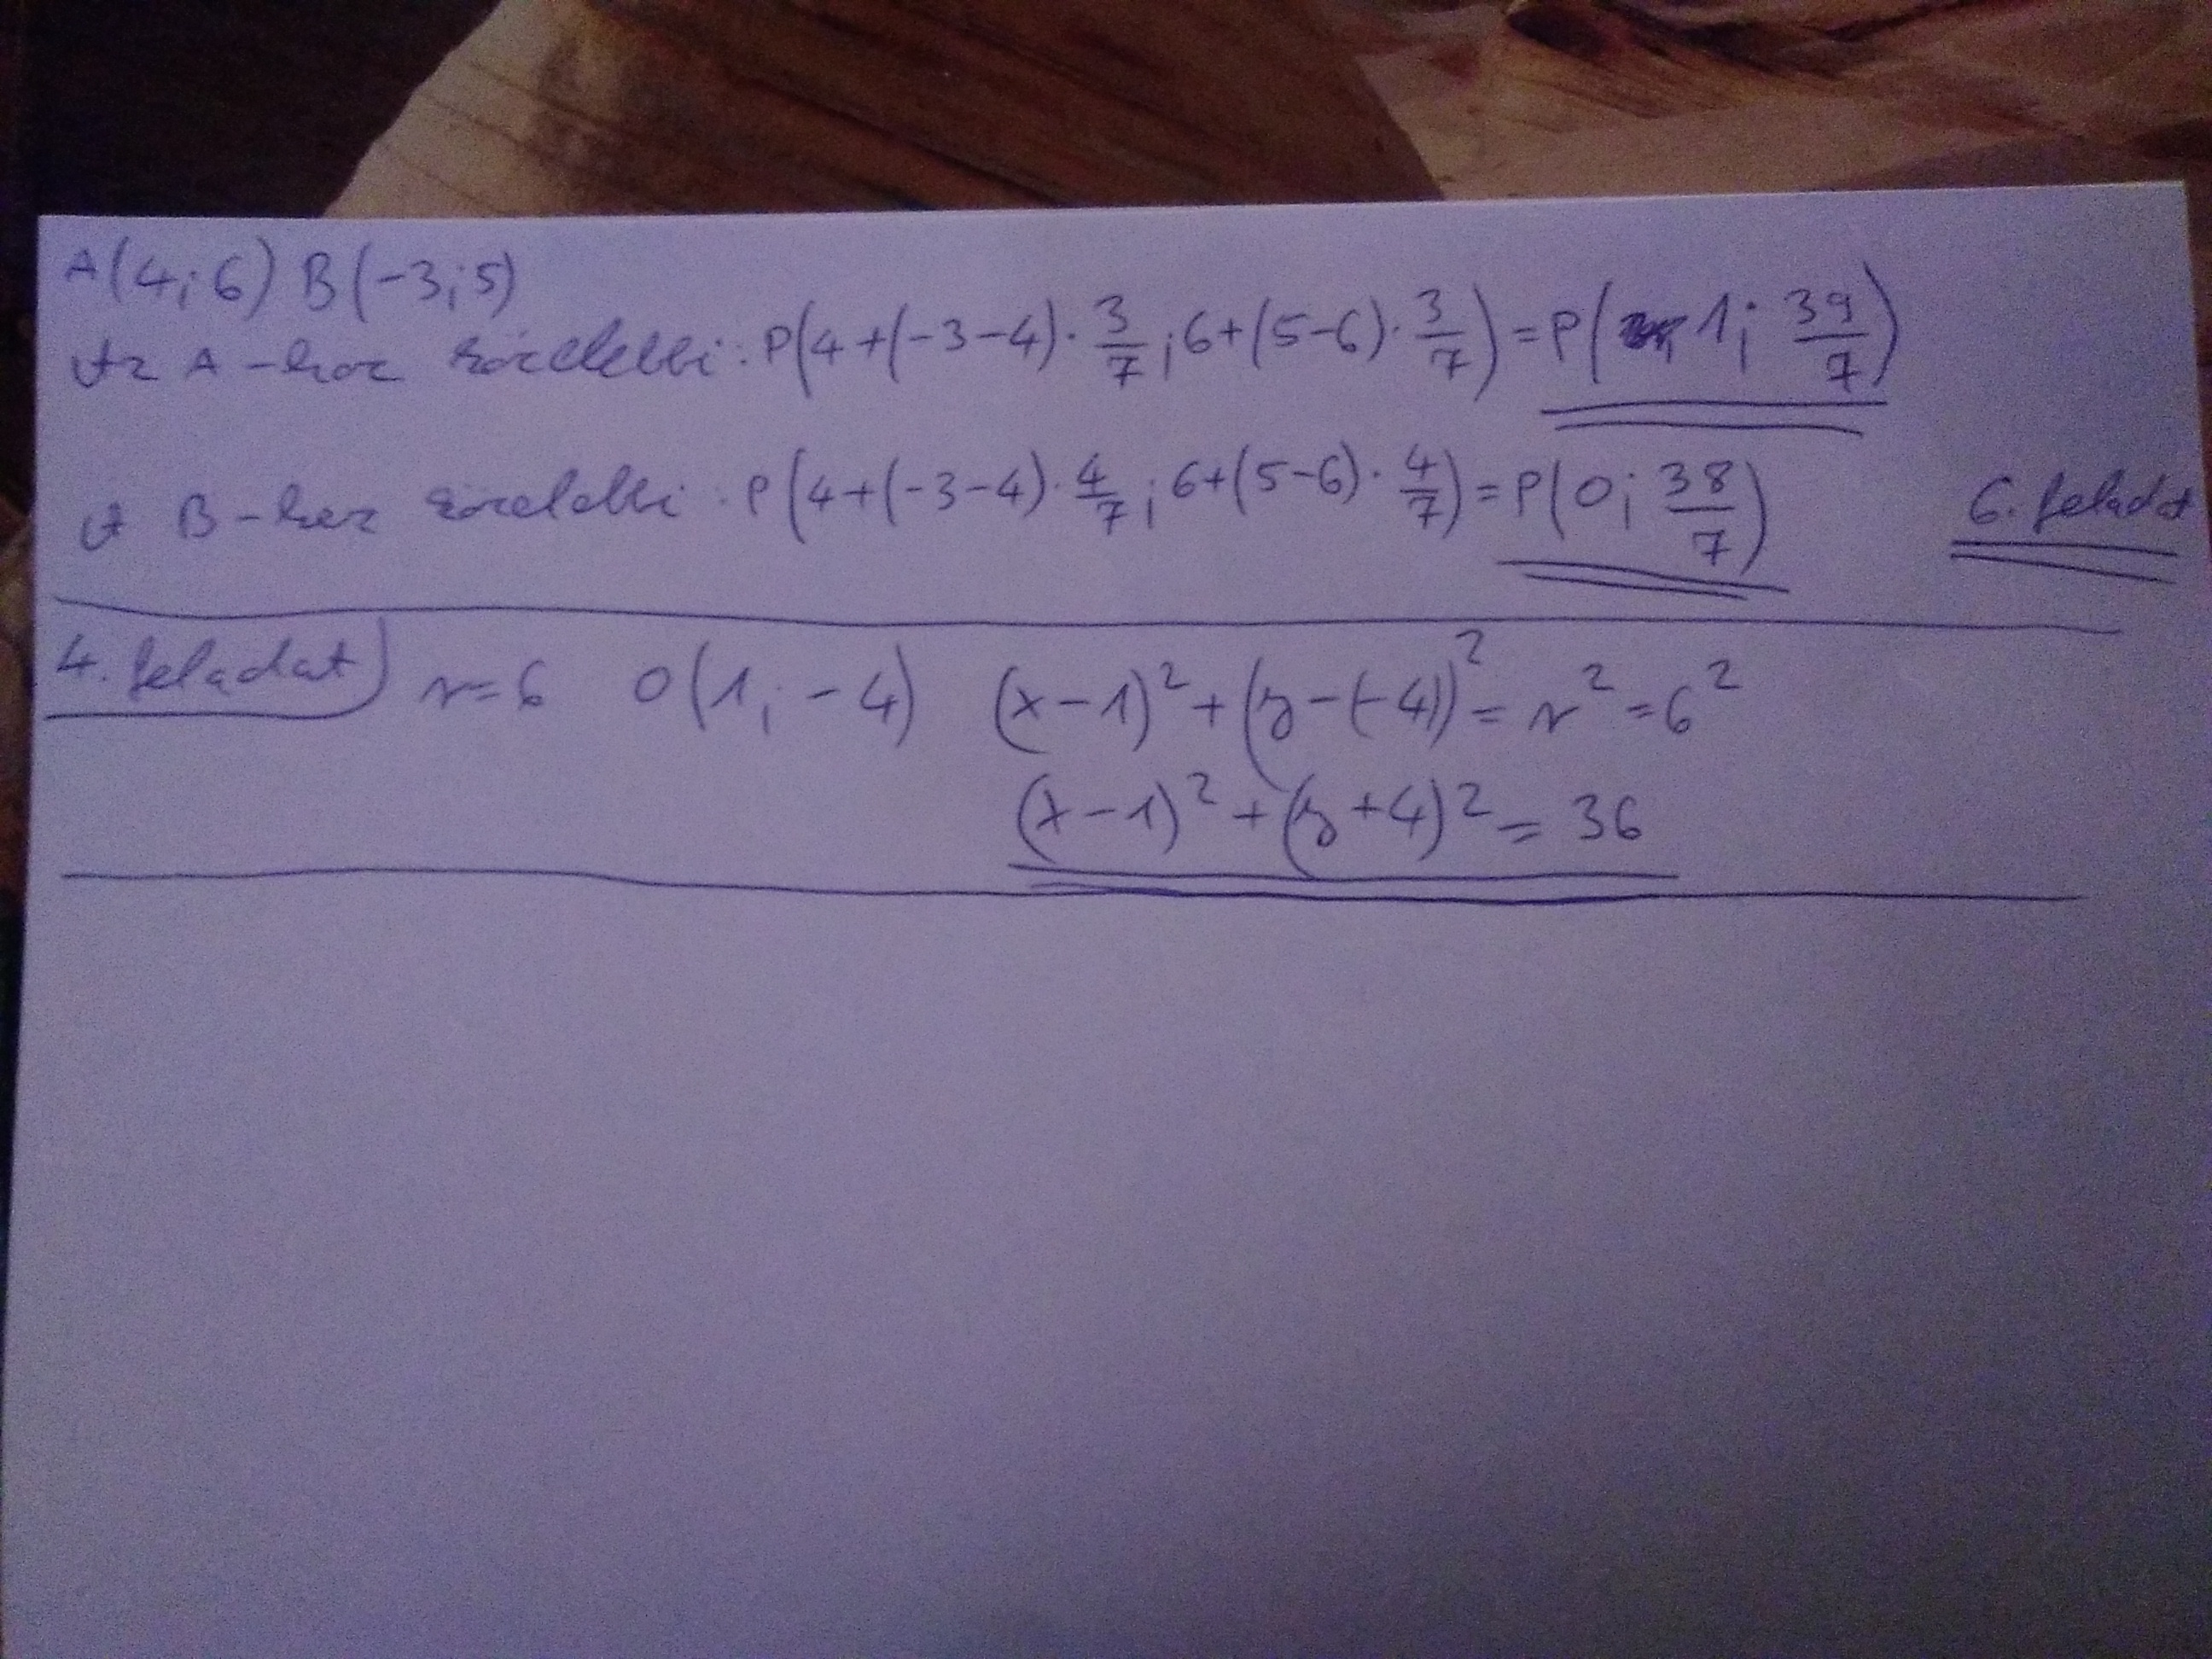 A(4;6) B(-3;5)
Az A-hoz közelebbi: P(4+(-3-4)·3/7; 6+(5-6)·3/7) = P(1; 39/7)
A B-hez közelebbi: P(4+(-3-4)·4/7; 6+(5-6)·4/7) = P(0; 38/7)
6. feladat
4. feladat r=6 O(1;-4) (x-1)²+(y-(-4))² = r² = 6²
(x-1)²+(y+4)² = 36